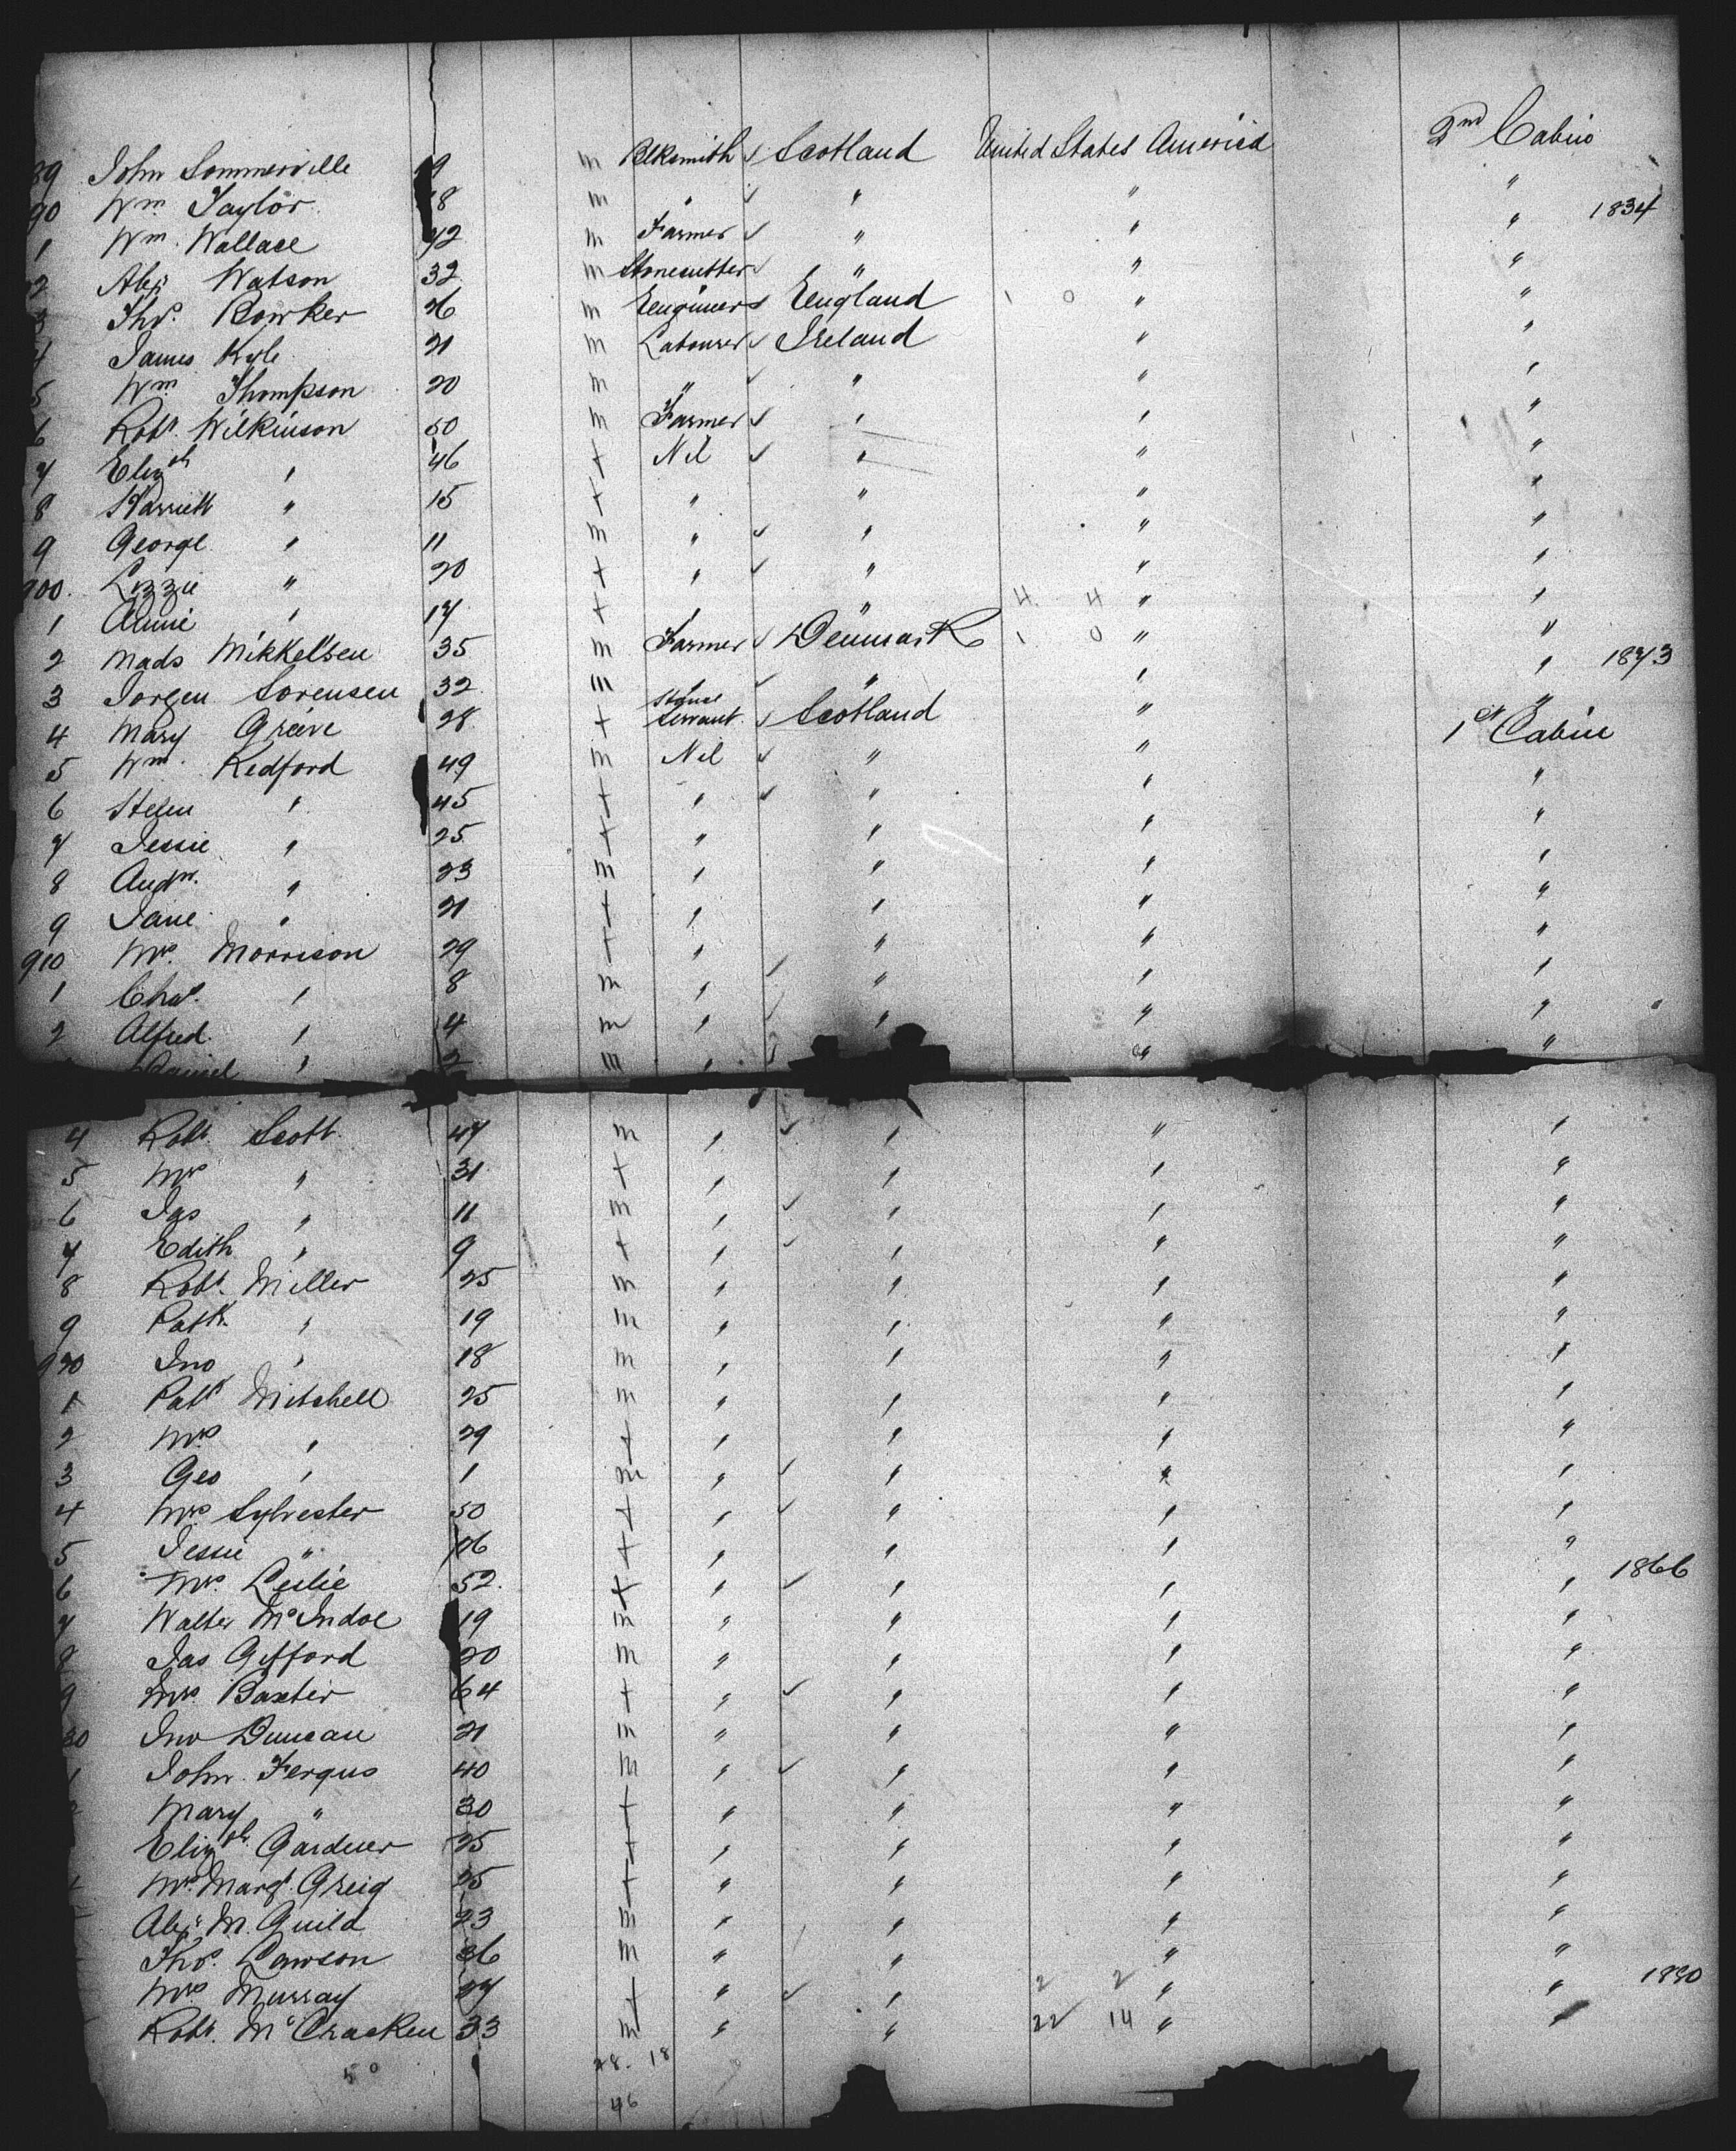 89 John Sommerville 19 m Blksmith ✓ Scotland United States America 2nd Cabin
90 Wm Taylor 18 m " ✓ " " "
1 Wm. Wallace 42 m Farmer ✓ " " " 1834
2 Alexr Watson 32 m Stonecutter ✓ " " "
3 Thos. Bowker 26 m Engineer ✓ England 1 0 " "
4 James Kyle 21 m Labourer ✓ Ireland " "
5 Wm Thompson 20 m " ✓ " " "
6 Robt. Wilkinson 50 m Farmer ✓ " " "
7 Elizth " 46 f Nil ✓ " " "
8 Harriett " 15 f " " " "
9 George " 11 m " ✓ " " "
900. Lizzie " 20 f " ✓ " " "
1 Annie " 17 f " " 4 4 " "
2 Mads Mikkelsen 35 m Farmer ✓ Denmark 1 0 " "
3 Jorgen Sorensen 32 m " ✓ " " " 1873
4 Mary Greive 28 f House Servant ✓ Scotland " "
5 Wm. Redford 49 m Nil ✓ " " 1st Cabin
6 Helen " 45 f " ✓ " " "
7 Jessie " 25 f " " " "
8 Andw. " 23 m " " " "
9 Jane " 21 f " " " "
910 Mrs. Morrison 29 f " " " "
1 Chas. " 8 m " ✓ " " "
2 Alfred " 4 m " ✓ " " "
Daniel " 2 m " " "
4 Robt. Scott 47 m " ✓ " " "
5 Mrs " 31 f " " " "
6 Jas " 11 m " ✓ " " "
7 Edith " 9 f " ✓ " " "
8 Robt. Miller 25 m " " " "
9 Patk. " 19 m " " " "
920 Jno " 18 m " " " "
1 Patk Mitchell 25 m " " " "
2 Mrs " 29 f " " " "
3 Geo " 1 m " ✓ " " "
4 Mrs Sylvester 50 f " ✓ " " "
5 Jessie " 26 f " " " "
6 Mrs. Leslie 52. f " ✓ " " " 1866
7 Walter McIndoe 19 m " " " "
8 Jas Gifford 20 m " " " "
9 Mrs Baxter 64 f " ✓ " " "
30 Jno Duncan 21 m " " " "
1 John Fergus 40 m " ✓ " " "
2 Mary " 30 f " " " "
Elizth. Gardener 25 f " " " "
Mrs. Margt. Greig 25 f " " " "
Alexr M. Guild 23 m " " " "
Thos. Lawson 36 m " " " "
Mrs Murray 27 f " ✓ " 2 2 " "
Robt. McCracken 33 m " " 22 14 " "
50 28. 18
46